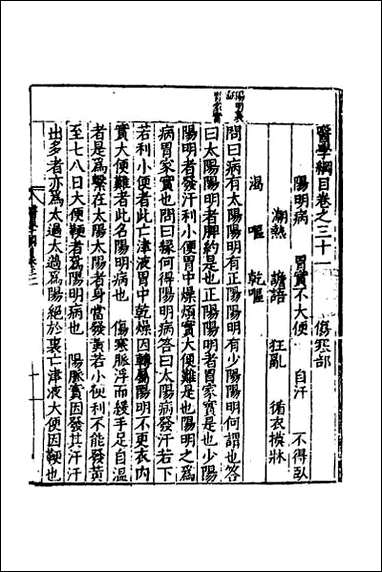 醫學綱目卷之三十一　傷寒部
陽明病　胃實不大便　自汗　不得臥
潮熱　譫語　狂亂　循衣摸牀
渴　嘔　乾嘔
問曰病有太陽陽明有正陽陽明有少陽陽明何謂也答
曰太陽陽明者脾約是也正陽陽明者胃家實是也少陽
陽明者發汗利小便胃中燥煩實大便難是也陽明之為
病胃家實也問曰緣何得陽明病答曰太陽病發汗若下
若利小便者此亡津液胃中乾燥因轉屬陽明不更衣內
實大便難者此名陽明病也　傷寒脈浮而緩手足自溫
者是為繫在太陰太陰者身當發黃若小便利不能發黃
至七八日大便鞕者為陽明病也　陽脈實因發其汗汗
出多者亦為太過太過為陽絕於裏亡津液大便因鞕也